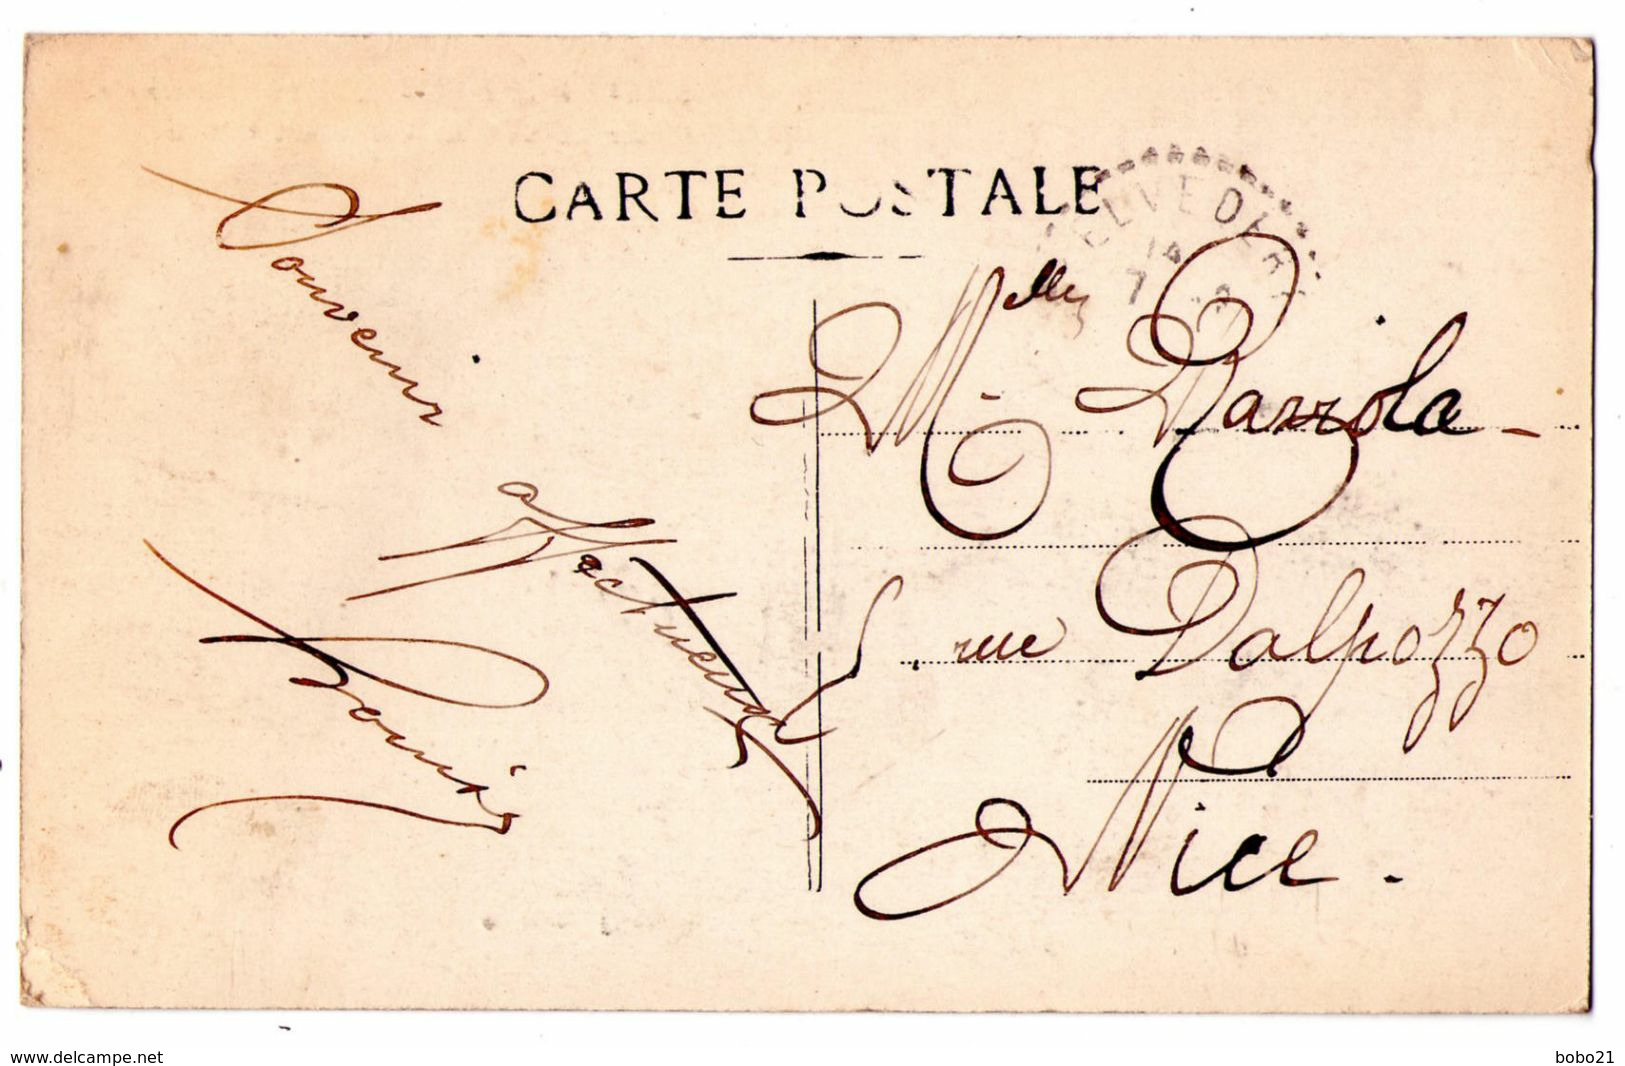 CARTE POSTALE
BELVEDERE
14
7
Souvenir
affectueux
Louis
Melles Bazzola
5 rue Dalpozzo
Nice.
www.delcampe.net
bobo21